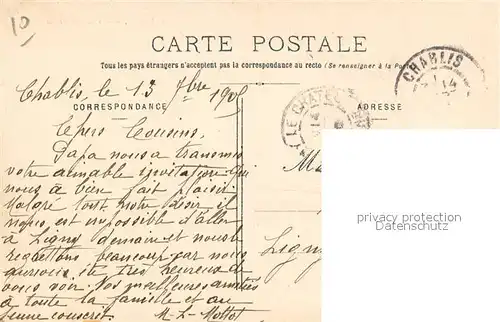 10
CARTE POSTALE
Tous les pays étrangers n'acceptent pas la correspondance au recto (Se renseigner à la Pos
CHABLIS
14
Chablis, le 13 7bre 1905
CORRESPONDANCE
ADRESSE
LE CHATEL
Chers Cousins,
Papa nous a transmis
votre aimable invitation qui
nous a bien fait plaisir.
Malgré tout notre désir il
nous est impossible d'aller
à Ligny demain et nous le
regrettons beaucoup car nous
aurions été très heureux de
vous voir. Nos meilleures amitiés
à toute la famille et au
jeune conscrit. M-L-Mottot
Ma
Lign
privacy protection
Datenschutz